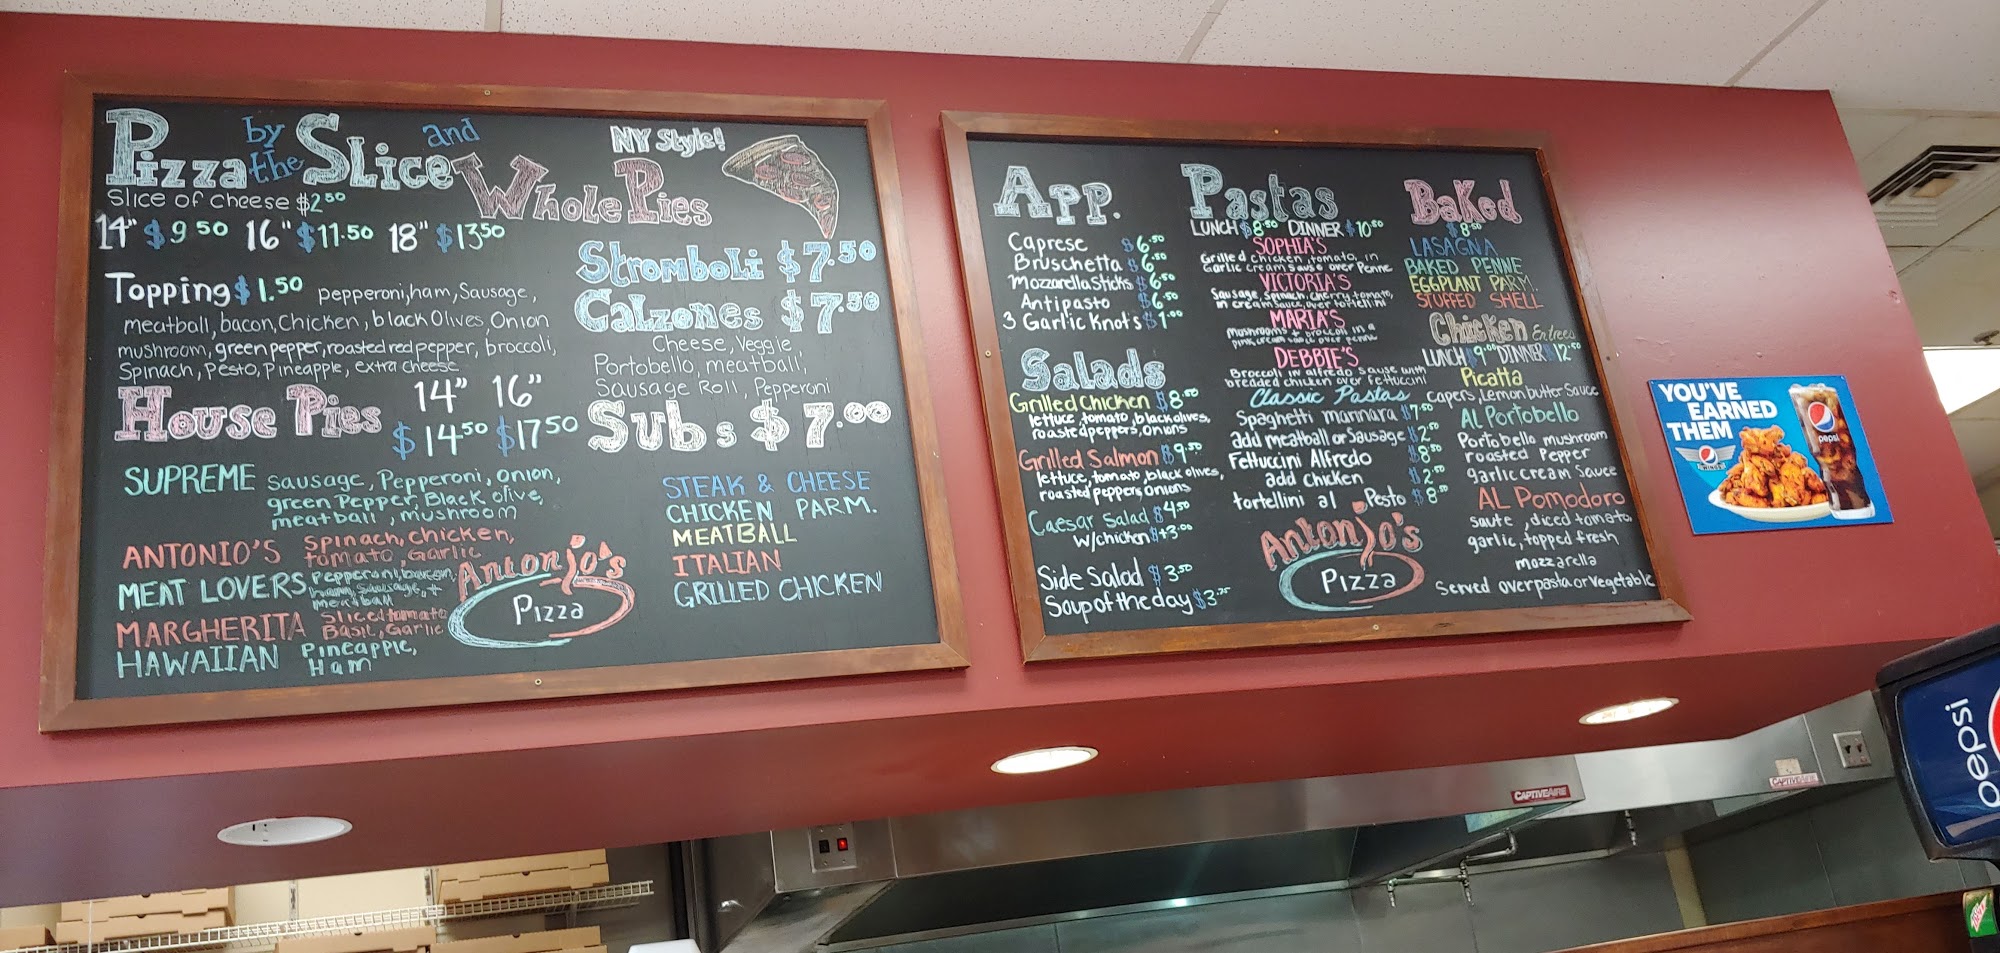 Pizza by the Slice and
Whole Pies
NY Style!
Slice of cheese $2.50
14" $9.50 16" $11.50 18" $13.50
Topping $1.50 pepperoni, ham, Sausage,
meatball, bacon, Chicken, black Olives, Onion
mushroom, green pepper, roasted red pepper, broccoli,
Spinach, Pesto, Pineapple, extra cheese
House Pies
14" 16"
$14.50 $17.50
SUPREME Sausage, Pepperoni, onion,
green Pepper, Black olive,
meatball, mushroom
ANTONIO'S Spinach, chicken,
tomato, Garlic
MEAT LOVERS Pepperoni, bacon,
ham, sausage, +
meatball
MARGHERITA Sliced tomato
Basil, Garlic
HAWAIIAN Pineapple,
Ham
Stromboli $7.50
Calzones $7.50
Cheese, Veggie
Portobello, meatball,
Sausage Roll, Pepperoni
Subs $7.00
STEAK & CHEESE
CHICKEN PARM.
MEATBALL
ITALIAN
GRILLED CHICKEN
Antonjo's
Pizza
App.
Caprese $6.50
Bruschetta $6.50
Mozzarella Sticks $6.50
Antipasto $6.50
3 Garlic Knot's $1.00
Salads
Grilled Chicken $8.50
lettuce, tomato, black olives,
roasted peppers, onions
Grilled Salmon $9.50
lettuce, tomato, black olives,
roasted peppers, onions
Caesar Salad $4.50
w/chicken $+3.00
Side Salad $3.50
Soup of the day $3.25
Pastas
LUNCH $8.50 DINNER $10.50
SOPHIA'S
Grilled chicken, tomato, in
Garlic cream sause over Penne
VICTORIA'S
Sausage, Spinach, Cherry tomato,
in cream sauce, over tortellini
MARIA'S
mushrooms + broccoli in a
pink cream sauce over penne
DEBBIE'S
Broccoli in alfredo sause with
breaded chicken over fettuccini
Classic Pastas
Spaghetti marinara $7.50
add meatball or Sausage $2.50
Fettuccini Alfredo $8.50
add chicken $2.50
tortellini al Pesto $8.50
Antonjo's
Pizza
Baked
$8.50
LASAGNA
BAKED PENNE
EGGPLANT PARM.
STUFFED SHELL
Chicken Entrees
LUNCH $9.00 DINNER $12.50
Picatta
capers, Lemon butter Sauce
AL Portobello
Portobello mushroom
roasted Pepper
garlic cream Sauce
AL Pomodoro
saute, diced tomato,
garlic, topped fresh
mozzarella
Served over pasta or Vegetable
YOU'VE
EARNED
THEM
WINGS
pepsi
pepsi
CAPTIVEAIRE
CAPTIVEAIRE